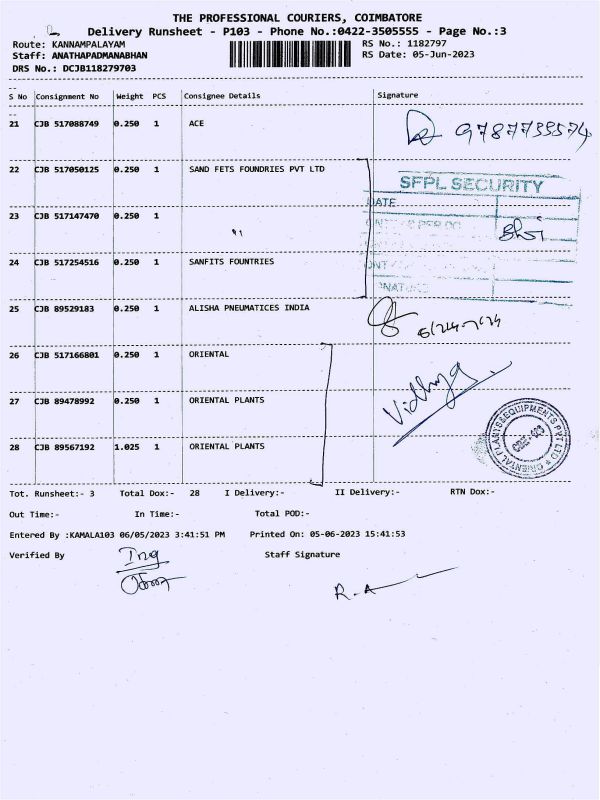 THE PROFESSIONAL COURIERS, COIMBATORE
Delivery Runsheet - P103 - Phone No.:0422-3505555 - Page No.:3
Route: KANNAMPALAYAM RS No.: 1182797
Staff: ANATHAPADMANABHAN RS Date: 05-Jun-2023
DRS No.: DCJB118279703
S No Consignment No Weight PCS Consignee Details Signature
21 CJB 517088749 0.250 1 ACE
22 CJB 517050125 0.250 1 SAND FETS FOUNDRIES PVT LTD
SFPL SECURITY
DATE
23 CJB 517147470 0.250 1
24 CJB 517254516 0.250 1 SANFITS FOUNTRIES
25 CJB 89529183 0.250 1 ALISHA PNEUMATICES INDIA
26 CJB 517166801 0.250 1 ORIENTAL
Vidhya
27 CJB 89478992 0.250 1 ORIENTAL PLANTS
ORIENTAL PLANTS & EQUIPMENTS PVT LTD
28 CJB 89567192 1.025 1 ORIENTAL PLANTS
Tot. Runsheet:- 3 Total Dox:- 28 I Delivery:- II Delivery:- RTN Dox:-
Out Time:- In Time:- Total POD:-
Entered By :KAMALA103 06/05/2023 3:41:51 PM Printed On: 05-06-2023 15:41:53
Verified By Staff Signature
R.A